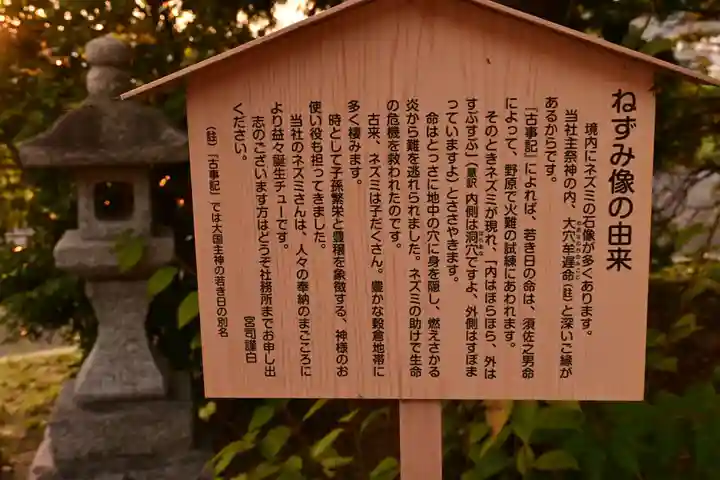 ねずみ像の由来
境内にネズミの石像が多くあります。
当社主祭神の内、大穴牟遅命(註)と深いご縁が
あるからです。
『古事記』によれば、若き日の命は、須佐之男命
によって、野原で火難の試練にあわれます。
そのときネズミが現れ、「内はほらほら、外は
すぶすぶ」(意訳 内側は洞穴ですよ、外側はすぼま
っていますよ)とささやきます。
命はとっさに地中の穴に身を隠し、燃えさかる
炎から難を逃れられました。ネズミの助けで生命
の危機を救われたのです。
古来、ネズミは子だくさん。豊かな穀倉地帯に
多く棲みます。
時として子孫繁栄と豊穣を象徴する、神様のお
使い役も担ってきました。
当社のネズミさんは、人々の奉納のまごころに
より益々誕生チューです。
志のございます方はどうぞ社務所までお申し出
ください。
宮司謹白
(註)『古事記』では大国主神の若き日の別名